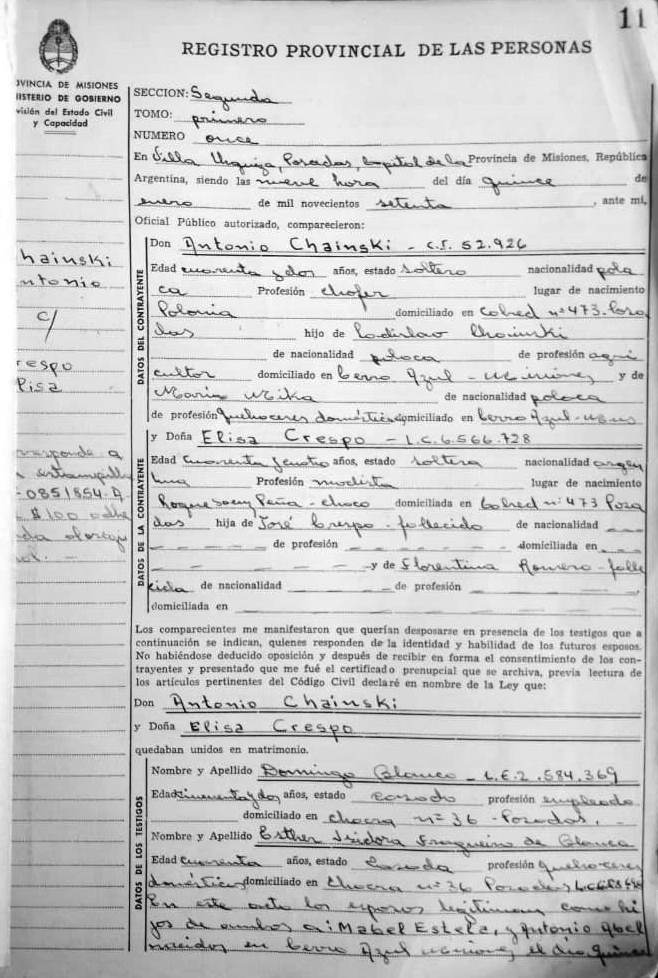 11
REGISTRO PROVINCIAL DE LAS PERSONAS
OVINCIA DE MISIONES
NISTERIO DE GOBIERNO
visión del Estado Civil
y Capacidad
hainski
ntonio
c/
respo
lisa
rresponde a
estampilla
-0851854-A.
$100
SECCION: Segunda
TOMO: primero
NUMERO once
En Villa Urquiza, Posadas, Capital de la Provincia de Misiones, República
Argentina, siendo las nueve hora del día quince de
enero de mil novecientos setenta, ante mí,
Oficial Público autorizado, comparecieron:
DATOS DEL CONTRAYENTE
Don Antonio Chainski - C.I. 52.926
Edad cuarenta y dos años, estado soltero nacionalidad pola
ca Profesión chofer lugar de nacimiento
Polonia domiciliado en Colred nº 473 - Posa
das hijo de Ladislao Chainski
de nacionalidad polaca de profesión agri
cultor domiciliado en Cerro Azul - Misiones y de
María Mika de nacionalidad polaca
de profesión quehaceres domésticos domiciliado en Cerro Azul -
y Doña Elisa Crespo - L.C. 6.566.728
DATOS DE LA CONTRAYENTE
Edad cuarenta y cuatro años, estado soltera nacionalidad argen
tina Profesión modista lugar de nacimiento
Roque Saenz Peña - Chaco domiciliada en Colred nº 473 Posa
das hija de José Crespo - fallecido de nacionalidad
de profesión domiciliado en
y de Florentina Romero - falle
cida de nacionalidad de profesión
domiciliada en
Los comparecientes me manifestaron que querían desposarse en presencia de los testigos que a
continuación se indican, quienes responden de la identidad y habilidad de los futuros esposos.
No habiéndose deducido oposición y después de recibir en forma el consentimiento de los con-
trayentes y presentado que me fué el certificado prenupcial que se archiva, previa lectura de
los artículos pertinentes del Código Civil declaré en nombre de la Ley que:
Don Antonio Chainski
y Doña Elisa Crespo
quedaban unidos en matrimonio.
DATOS DE LOS TESTIGOS
Nombre y Apellido Domingo Blanco - L.E. 2.584.369
Edad cincuenta y dos años, estado casado profesión empleado
domiciliado en chacra nº 36 - Posadas. -
Nombre y Apellido Esther Isidora de Blanco
Edad cuarenta años, estado casada profesión quehaceres
domésticos domiciliado en Chacra nº 36 Posadas
En este acto los esposos legitiman como hi
jos de ambos a: Mabel Estela, y Antonio Abel
nacidos en Cerro Azul Misiones, el día quince